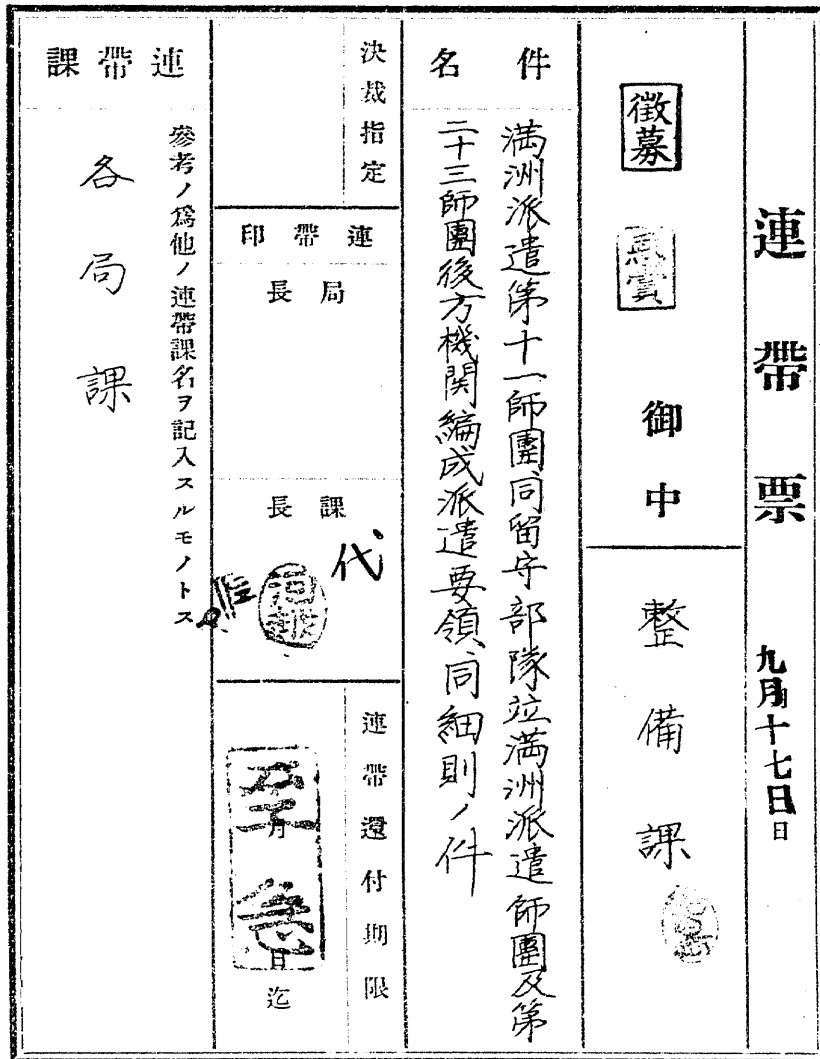 連帶票
九月十七日日
徴募
恩賞
御中
整備課
件名
満洲派遣第十一師團、同留守部隊竝満洲派遣師團及第
二十三師團後方機関編成派遣要領、同細則ノ件
決裁指定
連帶印
局長
課長
代
連帶還付期限
至急
月
日迄
連帶課
參考ノ爲他ノ連帶課名ヲ記入スルモノトス
各局課